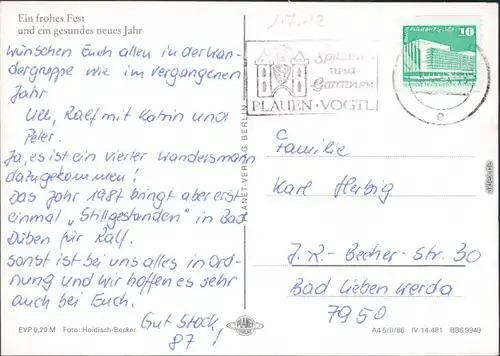 Ein frohes Fest
und ein gesundes neues Jahr
wünschen Euch allen in der Wan-
dergruppe wie im vergangenen
Jahr
Ulli, Ralf mit Katrin und
Peter.
Ja, es ist ein vierter Wandersmann
dazugekommen!
Das Jahr 1987 bringt aber erst
einmal „Stillgestanden" in Bad
Düben für Ralf.
Sonst ist bei uns alles in Ord-
nung und wir hoffen es sehr
auch bei Euch.
Gut Stock
87!
EVP 0,20 M Foto: Heidisch-Becker
PLANET-VERLAG BERLIN
PLANET
1.7.12
Spitzen
und
Gardinen
PLAUEN · VOGTL
e
10
Familie
Karl Herbig
J.-R.-Becher-Str. 30
Bad Liebenwerda
7950
A4 5/II/86 IV-14-481 BB6 9949